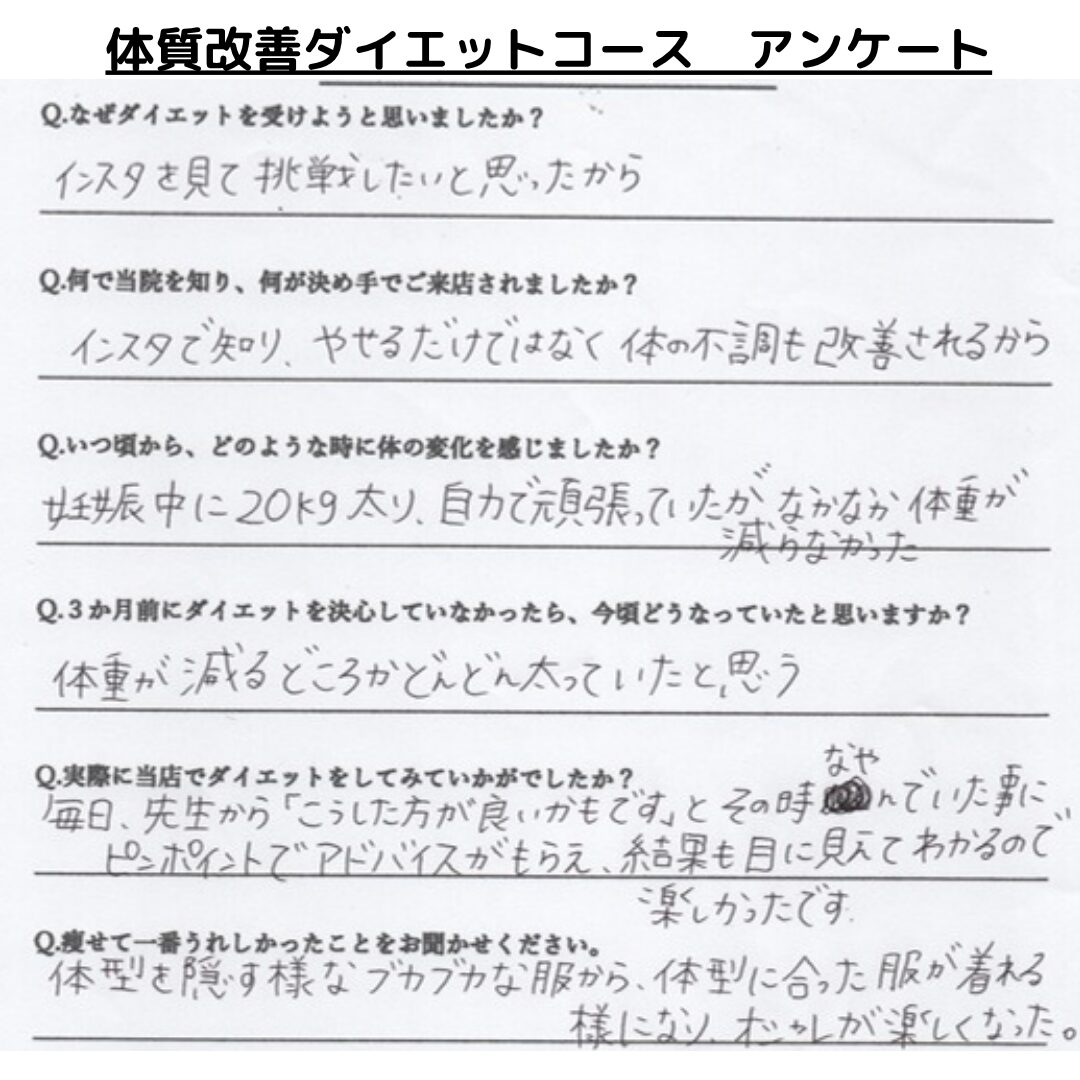 体質改善ダイエットコース　アンケート
Q.なぜダイエットを受けようと思いましたか？
インスタを見て挑戦したいと思ったから
Q.何で当院を知り、何が決め手でご来店されましたか？
インスタで知り、やせるだけではなく体の不調も改善されるから
Q.いつ頃から、どのような時に体の変化を感じましたか？
妊娠中に20kg太り、自力で頑張っていたが、なかなか体重が
減らなかった
Q.３か月前にダイエットを決心していなかったら、今頃どうなっていたと思いますか？
体重が減るどころかどんどん太っていたと思う
Q.実際に当店でダイエットをしてみていかがでしたか？
毎日、先生から「こうした方が良いかもです」とその時なやんでいた事に
ピンポイントでアドバイスがもらえ、結果も目に見えてわかるので
楽しかったです。
Q.痩せて一番うれしかったことをお聞かせください。
体型を隠す様なブカブカな服から、体型に合った服が着れる
様になり、オシャレが楽しくなった。